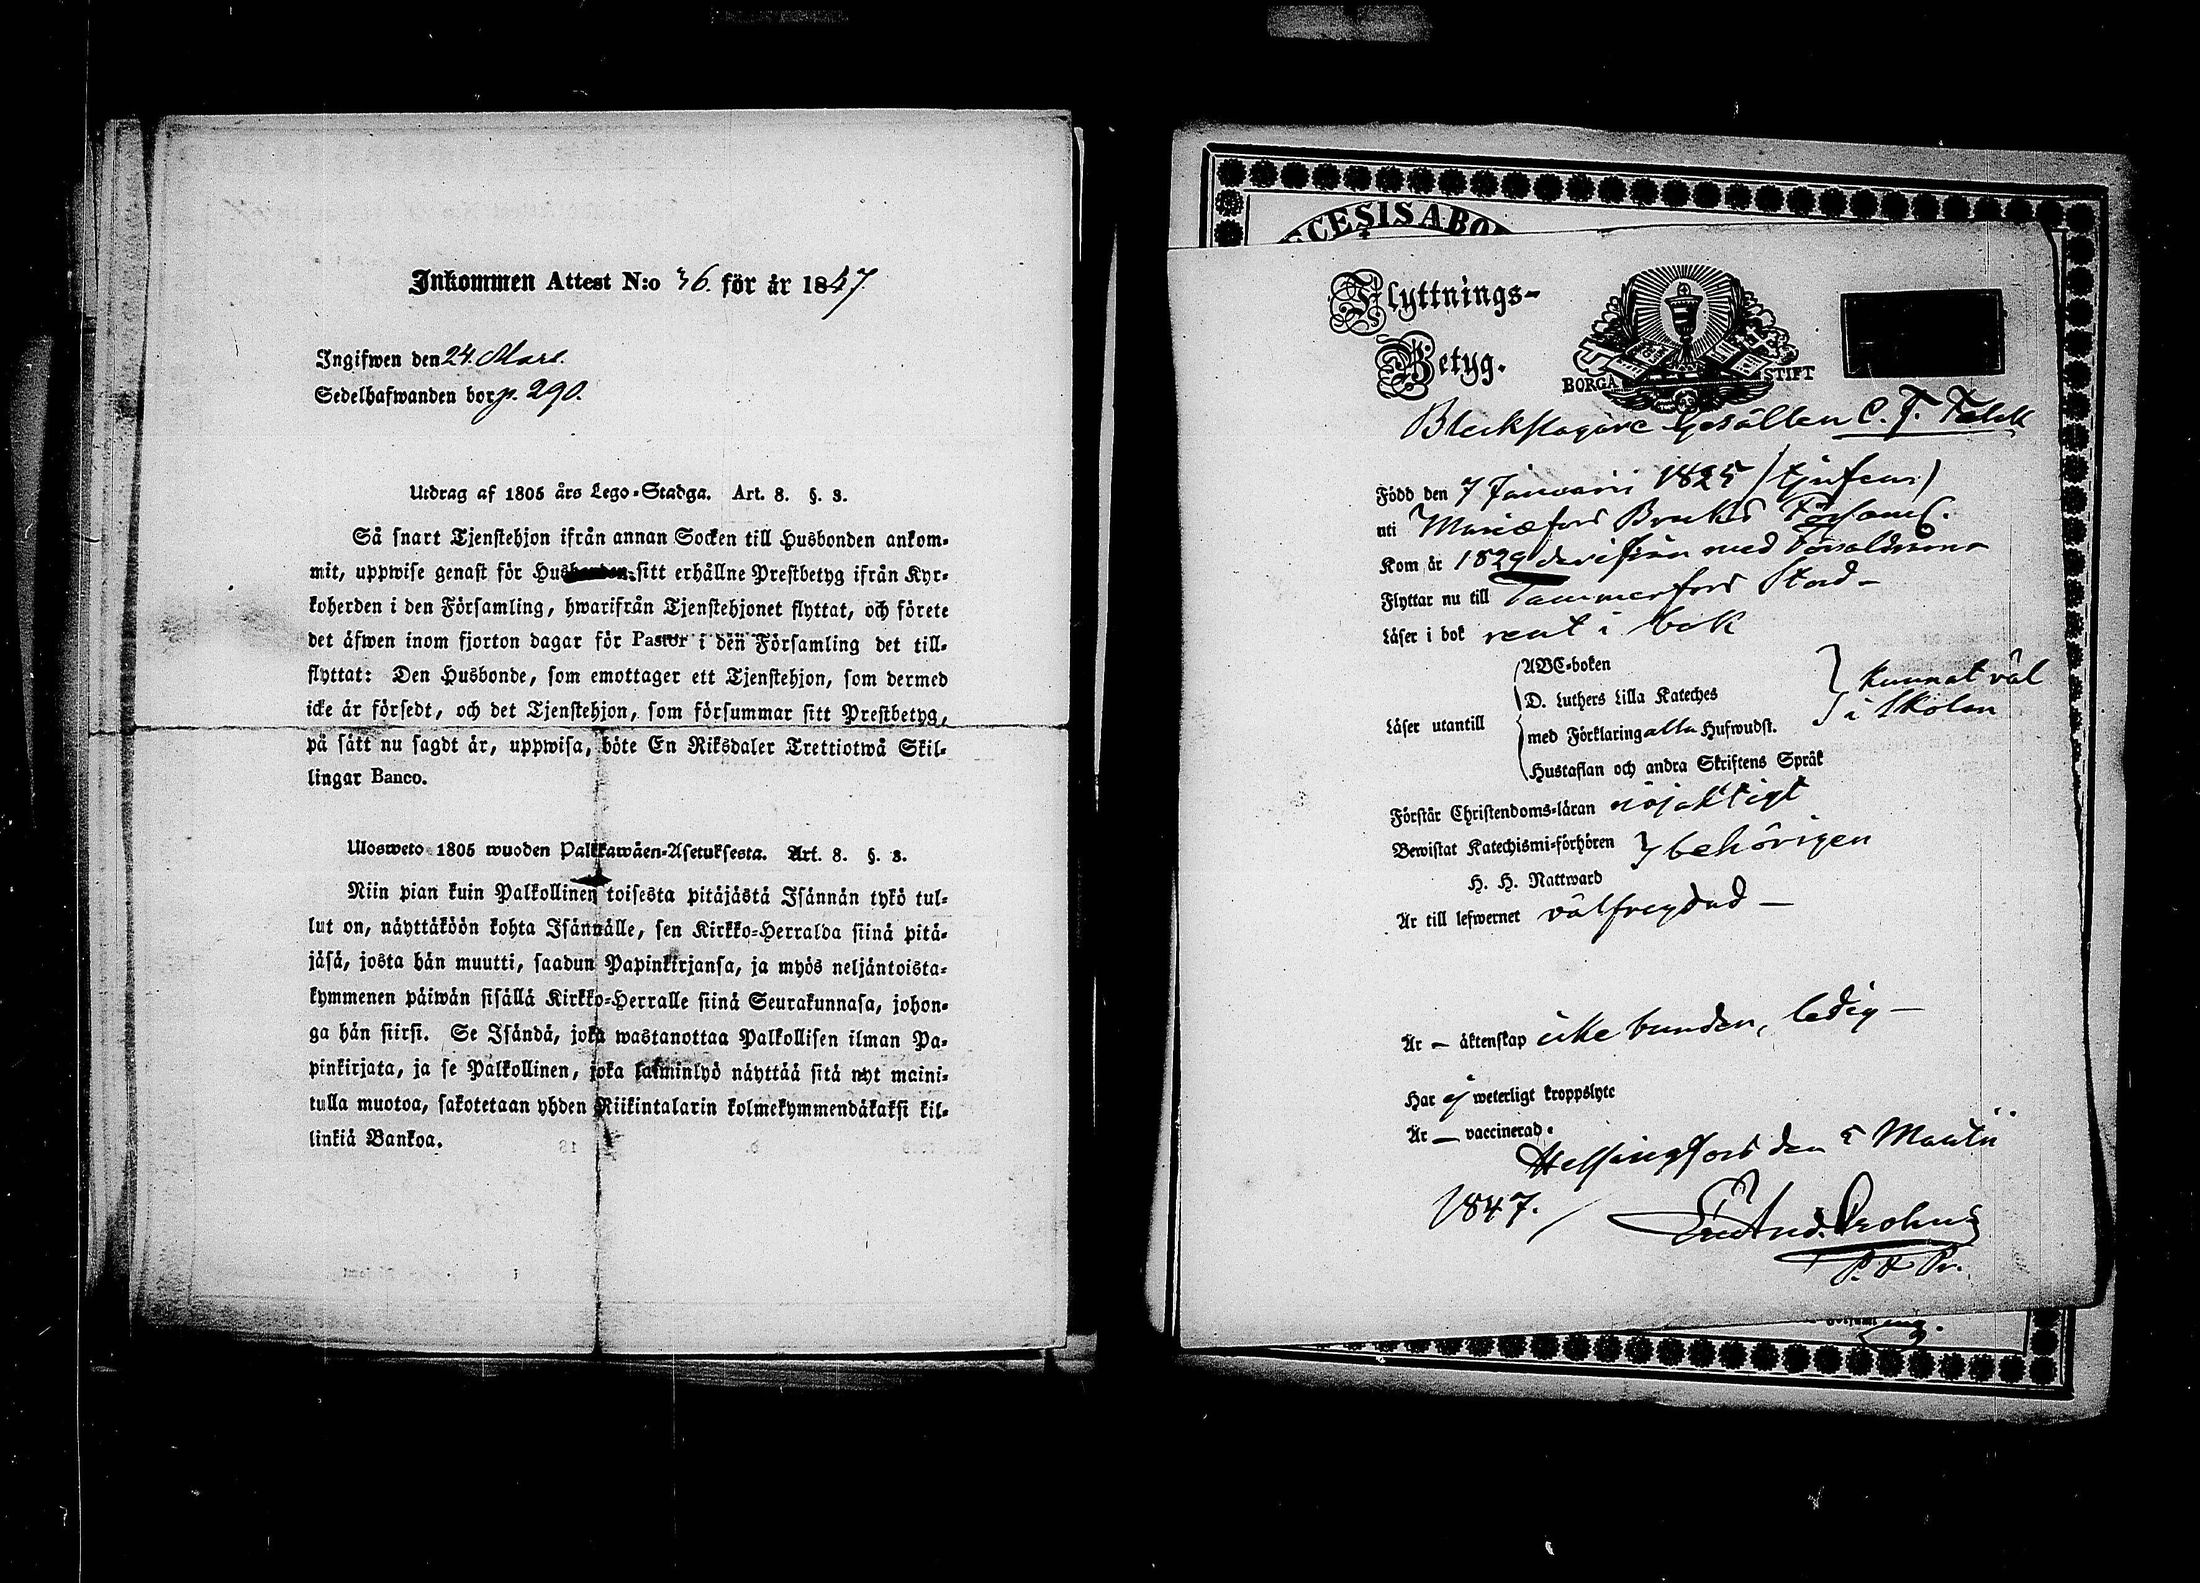 Inkommen Attest N:o 36 för år 1847
Ingifwen den 24. Mars.
Sedelhafwanden bor p. 290.
Utdrag af 1805 års Lego-Stadga. Art. 8. §. 3.
Så snart Tjenstehjon ifrån annan Socken till Husbonden ankom-
mit, uppwise genast för Husbonden sitt erhållne Prestbetyg ifrån Kyr-
koherden i den Församling, hwarifrån Tjenstehjonet flyttat, och förete
det äfwen inom fjorton dagar för Pastor i den Församling det till-
flyttat: Den Husbonde, som emottager ett Tjenstehjon, som dermed
icke är försedt, och det Tjenstehjon, som försummar sitt Prestbetyg,
på sätt nu sagdt är, uppwisa, böte En Riksdaler Trettiotwå Skil-
lingar Banco.
Ulosweto 1805 wuoden Palkkawäen-Asetuksesta. Art. 8. §. 3.
Niin pian kuin Palkollinen toisesta pitäjästä Isännän tykö tul-
lut on, näyttäköön kohta Isännälle, sen Kirkko-Herralda siinä pitä-
jäsä, josta hän muutti, saadun Papinkirjansa, ja myös neljäntoista-
kymmenen päiwän sisällä Kirkko-Herralle siinä Seurakunnasa, johon-
ga hän siirsi. Se Isändä, joka wastanottaa Palkollisen ilman Pa-
pinkirjata, ja se Palkollinen, joka laiminlyö näyttää sitä nyt maini-
tulla muotoa, sakotetaan yhden Riikintalarin kolmekymmendäkaksi kil-
linkiä Bankoa.
ECESIS ABO
Flyttnings-
Betyg.
BORGÅ STIFT
Bleckslagare Gesällen C. F.
Född den 7 Januarii 1825
uti Bruks Församl.
Kom år 1829 derifrån med Föräldrarne
Flyttar nu till Tammerfors Stad -
Läser i bok rent i bok
Läser utantill
ABC-boken
D. Luthers Lilla Kateches
med Förklaring alla Hufwudst.
Hustaflan och andra Skriftens Språk
kunnat väl
i Skolan
Förstår Christendoms-läran nöjaktigt
Bewistat Katechismi-förhören
H. H. Nattward
behörigen
Är till lefwernet välfreydad -
Är - äktenskap icke bunden, ledig -
Har ej weterligt kroppslyte
Är - vaccinerad.
Helsingfors den 5 Martii
1847.